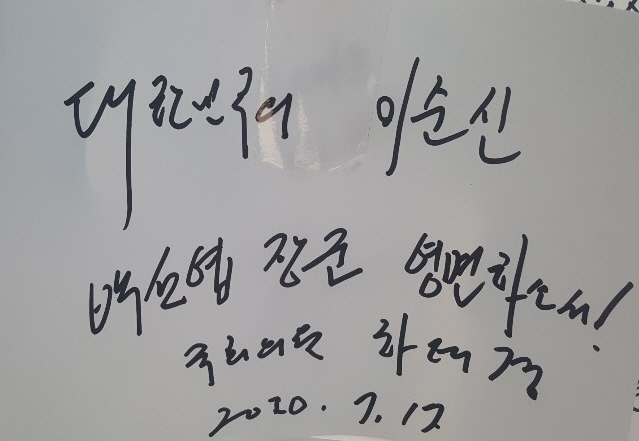 대한민국의 이순신
백선엽 장군 영면하소서!
국회의원 하태경
2020. 7. 12